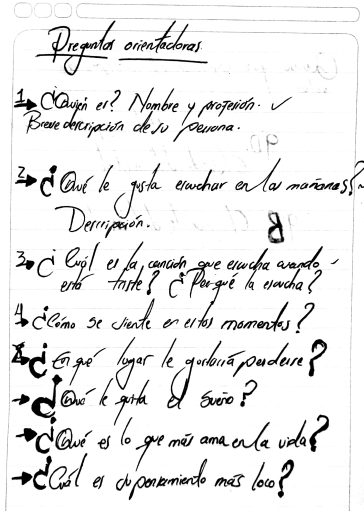 Preguntas orientadoras.
1 → ¿Quién es? Nombre y profesión. ✓
Breve descripción de su persona.
2 → ¿Qué le gusta escuchar en las mañanas?
Descripción.
3 → ¿Cuál es la canción que escucha cuando
está triste? ¿Por qué la escucha?
4 → ¿Cómo se siente en estos momentos?
→ ¿En qué lugar le gustaría perderse?
→ ¿Qué le quita el sueño?
→ ¿Qué es lo que más ama en la vida?
→ ¿Cuál es su pensamiento más loco?